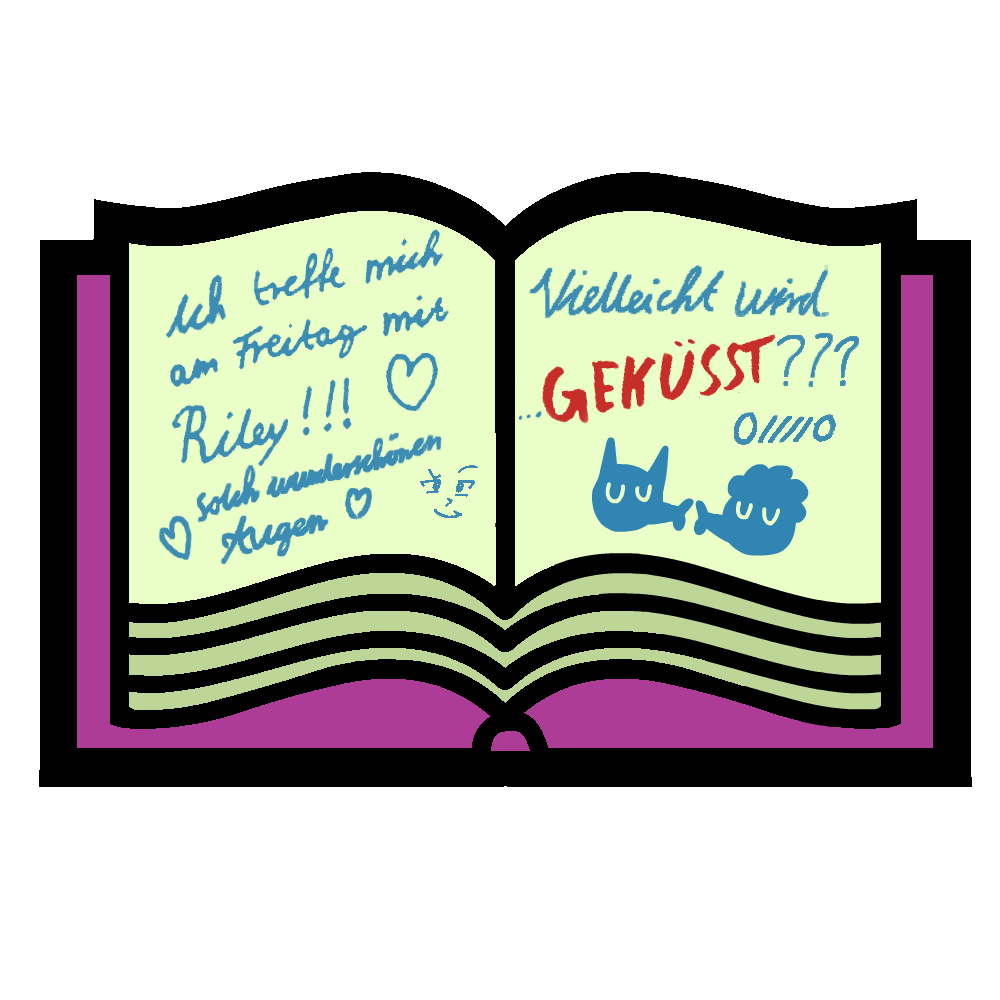 Ich treffe mich
am Freitag mit
Riley!!!
solch wunderschönen
Augen
Vielleicht wird
...GEKÜSST???
O/////O